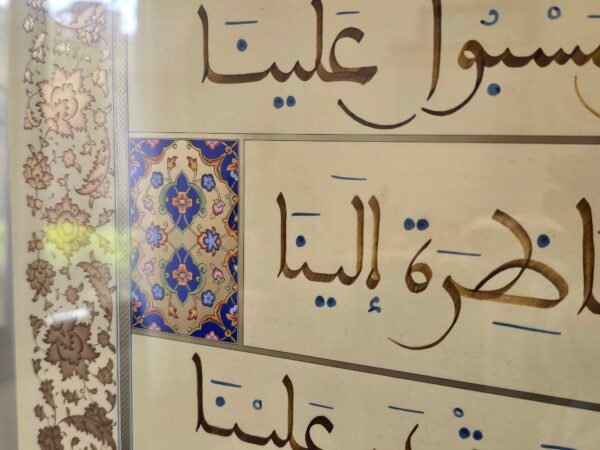 مسبول علينا
ناظرة إلينا
علينا